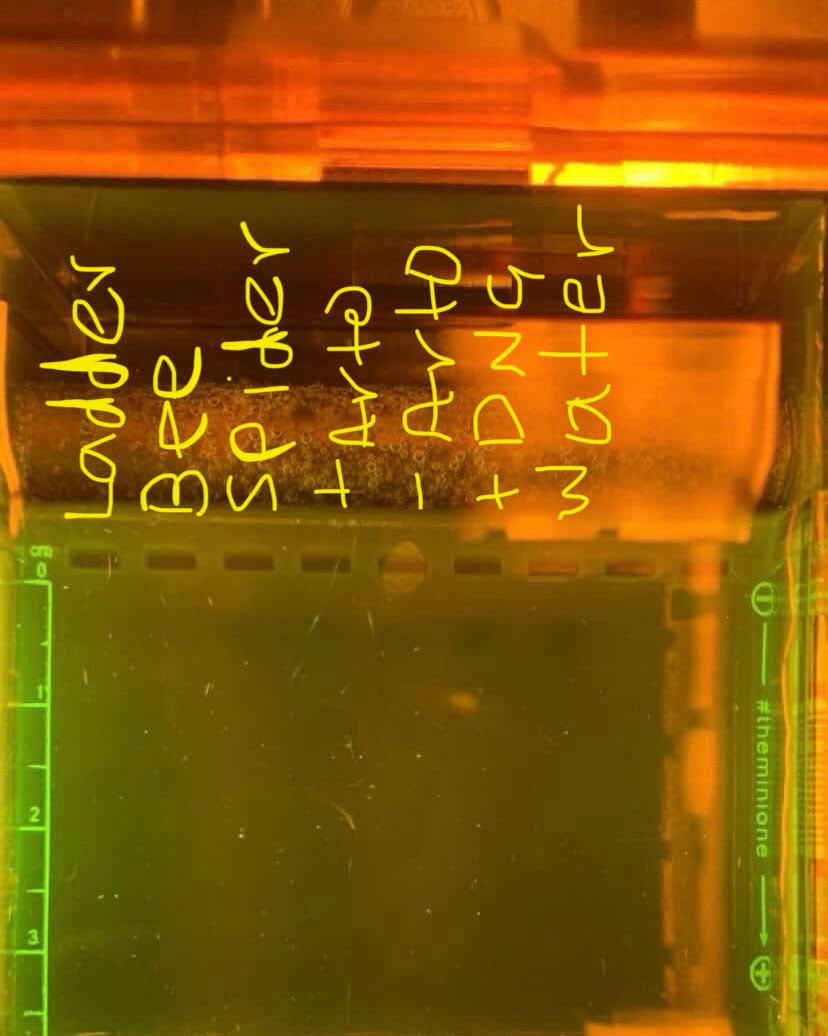 Ladder
Bee
Spider
+ Arto
- Arto
+ DNA
Water
cm
0
1
2
3
#theminione